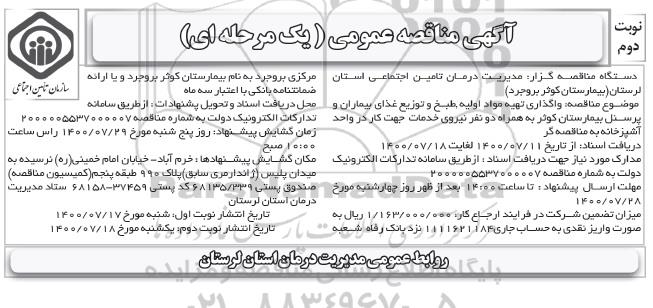 نوبت
دوم
آگهی مناقصه عمومی ( یک مرحله ای)
سازمان تأمین اجتماعی
دستگاه مناقصه گزار: مدیریت درمان تامین اجتماعی استان
لرستان(بیمارستان کوثر بروجرد)
موضوع مناقصه: واگذاری تهیه مواد اولیه ،طبخ و توزیع غذای بیماران و
پرسنل بیمارستان کوثر به همراه دو نفر نیروی خدمات جهت کار در واحد
آشپزخانه به مناقصه گر
دریافت اسناد: از تاریخ ۱۴۰۰/۰۷/۱۱ لغایت ۱۴۰۰/۰۷/۱۸
مدارک مورد نیاز جهت دریافت اسناد : ازطریق سامانه تدارکات الکترونیک
دولت به شماره مناقصه ۲۰۰۰۰۰۵۵۳۷۰۰۰۰۰۷
مهلت ارسال پیشنهاد : تا ساعت ۱۴:۰۰ بعد از ظهر روز چهارشنبه مورخ
۱۴۰۰/۰۷/۲۸
میزان تضمین شرکت در فرایند ارجاع کار: ۱/۱۶۳/۰۰۰/۰۰۰ ریال به
صورت واریز نقدی به حساب جاری۱۱۱۱۶۲۱۱۸۴ نزد بانک رفاه شعبه
مرکزی بروجرد به نام بیمارستان کوثر بروجرد و یا ارائه
ضمانتنامه بانکی با اعتبار سه ماه
محل دریافت اسناد و تحویل پشنهادات : ازطریق سامانه
تدارکات الکترونیک دولت به شماره مناقصه ۲۰۰۰۰۰۵۵۳۷۰۰۰۰۰۷
زمان گشایش پیشنهاد: روز پنج شنبه مورخ ۱۴۰۰/۰۷/۲۹ راس ساعت
۱۰:۰۰ صبح
مکان گشایش پیشنهادها : خرم آباد- خیابان امام خمینی(ره) نرسیده به
میدان پلیس (ژاندارمری سابق)پلاک ۹۹۰ طبقه پنجم(کمیسیون مناقصه)
صندوق پستی ۶۸۱۳۵/۳۳۹ کد پستی ۳۷۴۵۹-۶۸۱۵۸ ستاد مدیریت
درمان استان لرستان
تاریخ انتشار نوبت اول: شنبه مورخ ۱۴۰۰/۰۷/۱۷
تاریخ انتشار نوبت دوم: یکشنبه مورخ ۱۴۰۰/۰۷/۱۸
روابط عمومی مدیریت درمان استان لرستان